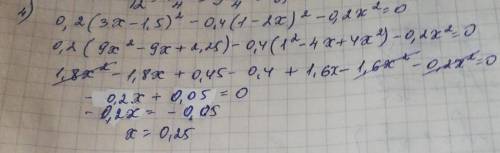 4)
0,2(3x-1,5)² -0,4(1-2x)² -0,2x²=0
0,2(9x²-9x+2,25)-0,4(1²-4x+4x²)-0,2x²=0
1,8x²-1,8x+0,45-0,4+1,6x-1,6x²-0,2x²=0
- 0,2x+0,05=0
- 0,2x=-0,05
x=0,25